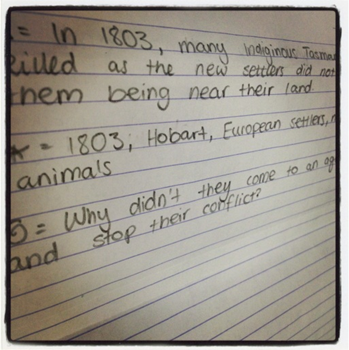 = In 1803, many Indiginous Tasma
killed as the new settlers did not
them being near their land
* = 1803, Hobart, European settlers,
animals
= Why didn't they come to an ag
and stop their conflict?